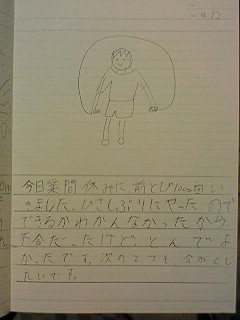 今日業間休みに、前とび100回い
きました。ひさしぶりにやったので
できるかわかんなかったから、
不合だったけど、とんでよ
かったです。次のてつも、合かくし
たいです。